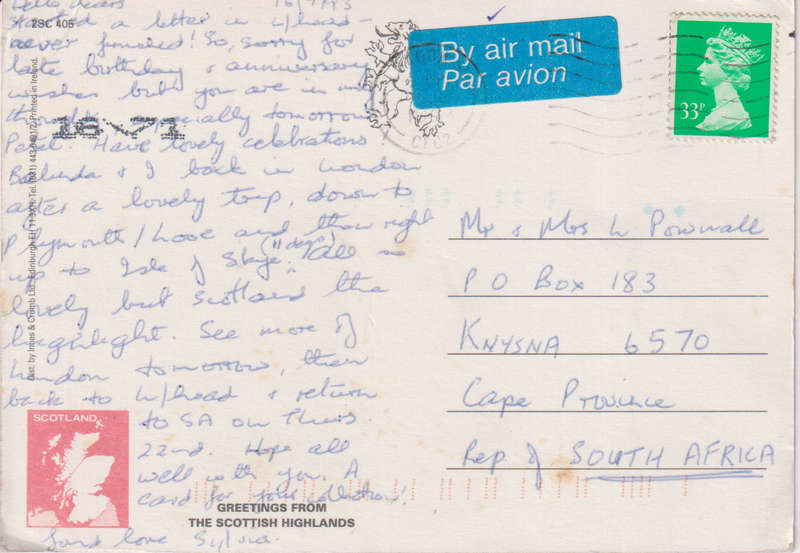 Hello dears 16/7/93
2SC 405
started a letter in W/head -
never finished! So, sorry for
late birthday & anniversary
wishes but you are in my
thoughts especially tomorrow
Have lovely celebrations!
Belinda & I back in London
after a lovely trip, down to
Plymouth/Looe and then right
up to Isle of Skye. (11 days) All so
lovely but Scotland the
highlight. See more of
London tomorrow, then
back to W/head & return
to SA on Thurs.
22nd. Hope all
well with you. A
card for your collection!
Fond love Sylvia.
Dist. by Innes & Cromb Ltd. Edinburgh Tel. (031) Printed in Ireland.
SCOTLAND
GREETINGS FROM
THE SCOTTISH HIGHLANDS
By air mail
Par avion
33P
Mr & Mrs L Pownall
P O Box 183
KNYSNA 6570
Cape Province
Rep of SOUTH AFRICA